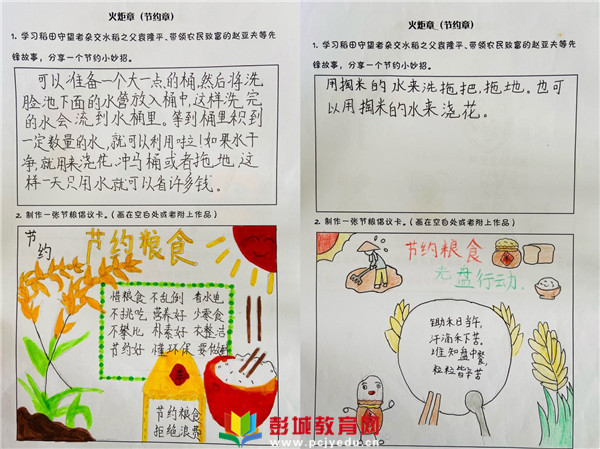 火炬章（节约章）
1. 学习稻田守望者杂交水稻之父袁隆平、带领农民致富的赵亚夫等先
锋故事，分享一个节约小妙招。
可以准备一个大一点的桶，然后将洗
脸池下面的水管放入桶中，这样洗完
的水会流到水桶里。等到桶里积到
一定数量的水，就可以利用啦！如果水干
净，就用来浇花、冲马桶或者拖地，这
样一天只用水就可以省许多钱。
2. 制作一张节粮倡议卡。（画在空白处或者附上作品）
节约
节约粮食
惜粮食 不乱倒
不挑吃 营养好 少零食
不攀比 朴素好
节约好 懂环保
节约粮食
拒绝浪费
火炬章（节约章）
1. 学习稻田守望者杂交水稻之父袁隆平、带领农民致富的赵亚夫等先
锋故事，分享一个节约小妙招。
用掏米的水来洗拖把，拖地。也可
以用掏米的水来浇花。
2. 制作一张节粮倡议卡。（画在空白处或者附上作品）
节约粮食
光盘行动.
锄禾日当午，
汗滴禾下苦。
谁知盘中餐，
粒粒皆辛苦
彭城教育网
www.pcjyedu.cn